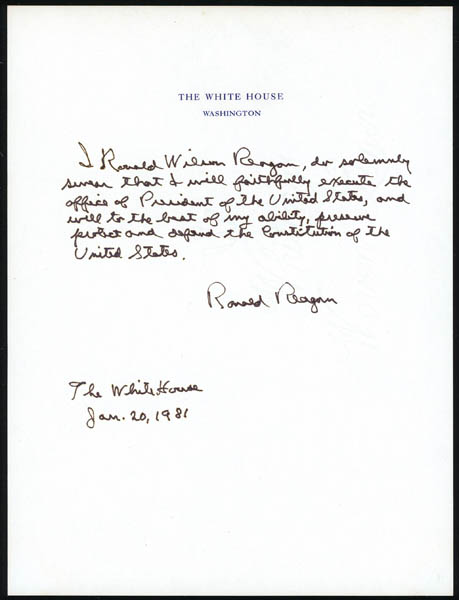 THE WHITE HOUSE
WASHINGTON
I Ronald Wilson Reagan, do solemnly
swear that I will faithfully execute the
office of President of the United States, and
will to the best of my ability, preserve
protect and defend the Constitution of the
United States.
Ronald Reagan
The White House
Jan. 20, 1981